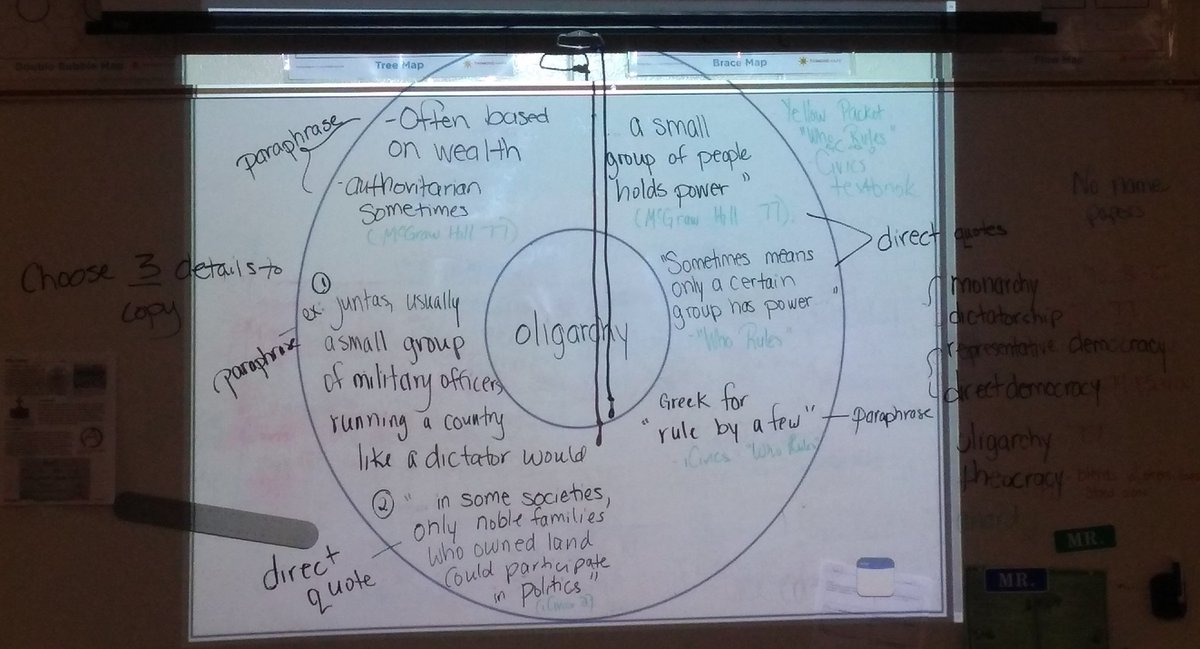 Double Bubble Map
Tree Map
Brace Map
Flow Map
paraphrase
-Often based
on wealth
-authoritarian
Sometimes
(McGraw Hill 77)
a small
group of people
holds power"
(McGraw Hill 77).
Yellow Packet
"Who Rules"
Civics
textbook
No name
papers
direct quotes
Choose 3 details to
copy
paraphrase
①
ex: juntas, usually
a small group
of military officers,
running a country
like a dictator would
oligarchy
"Sometimes means
only a certain
group has power."
-"Who Rules"
"Greek for
rule by a few"
paraphrase
-iCivics "Who Rules"
② "in some societies,
only noble families
who owned land
could participate
in politics"
direct
quote
monarchy
dictatorship
representative democracy
direct democracy
oligarchy
theocracy
MR.
MR.